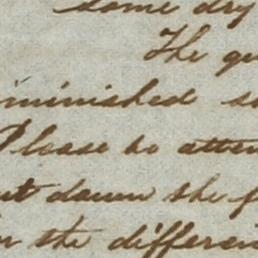 some dry
The qu
iminished s
Please to atten
ut down the f
r the differen